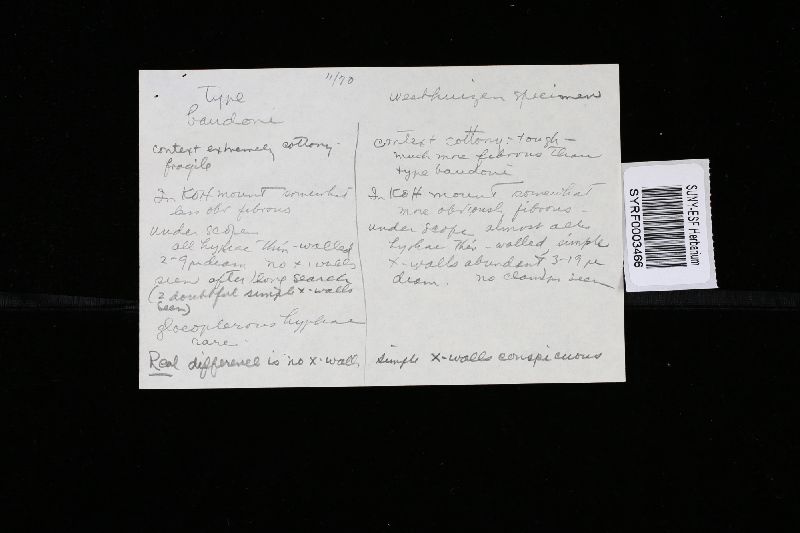 11/70
Type
baudoni
context extremely cottony -
fragile
In KOH mount somewhat
less obv fibrous
under scope
all hyphae thin-walled
2-9 µ diam no x walls
seen after long search
(2 doubtful simple x-walls
seen)
gloeopterous hyphae
rare.
Real difference is no x-walls
Westhuizen specimen
context cottony - tough -
much more fibrous than
type baudoni
In KOH mount somewhat
more obviously fibrous -
under scope almost all
hyphae thin-walled simple
x-walls abundant 3-19 µ
diam. no clamps seen
simple x-walls conspicuous
SUNY-ESF Herbarium
SYRF0003466